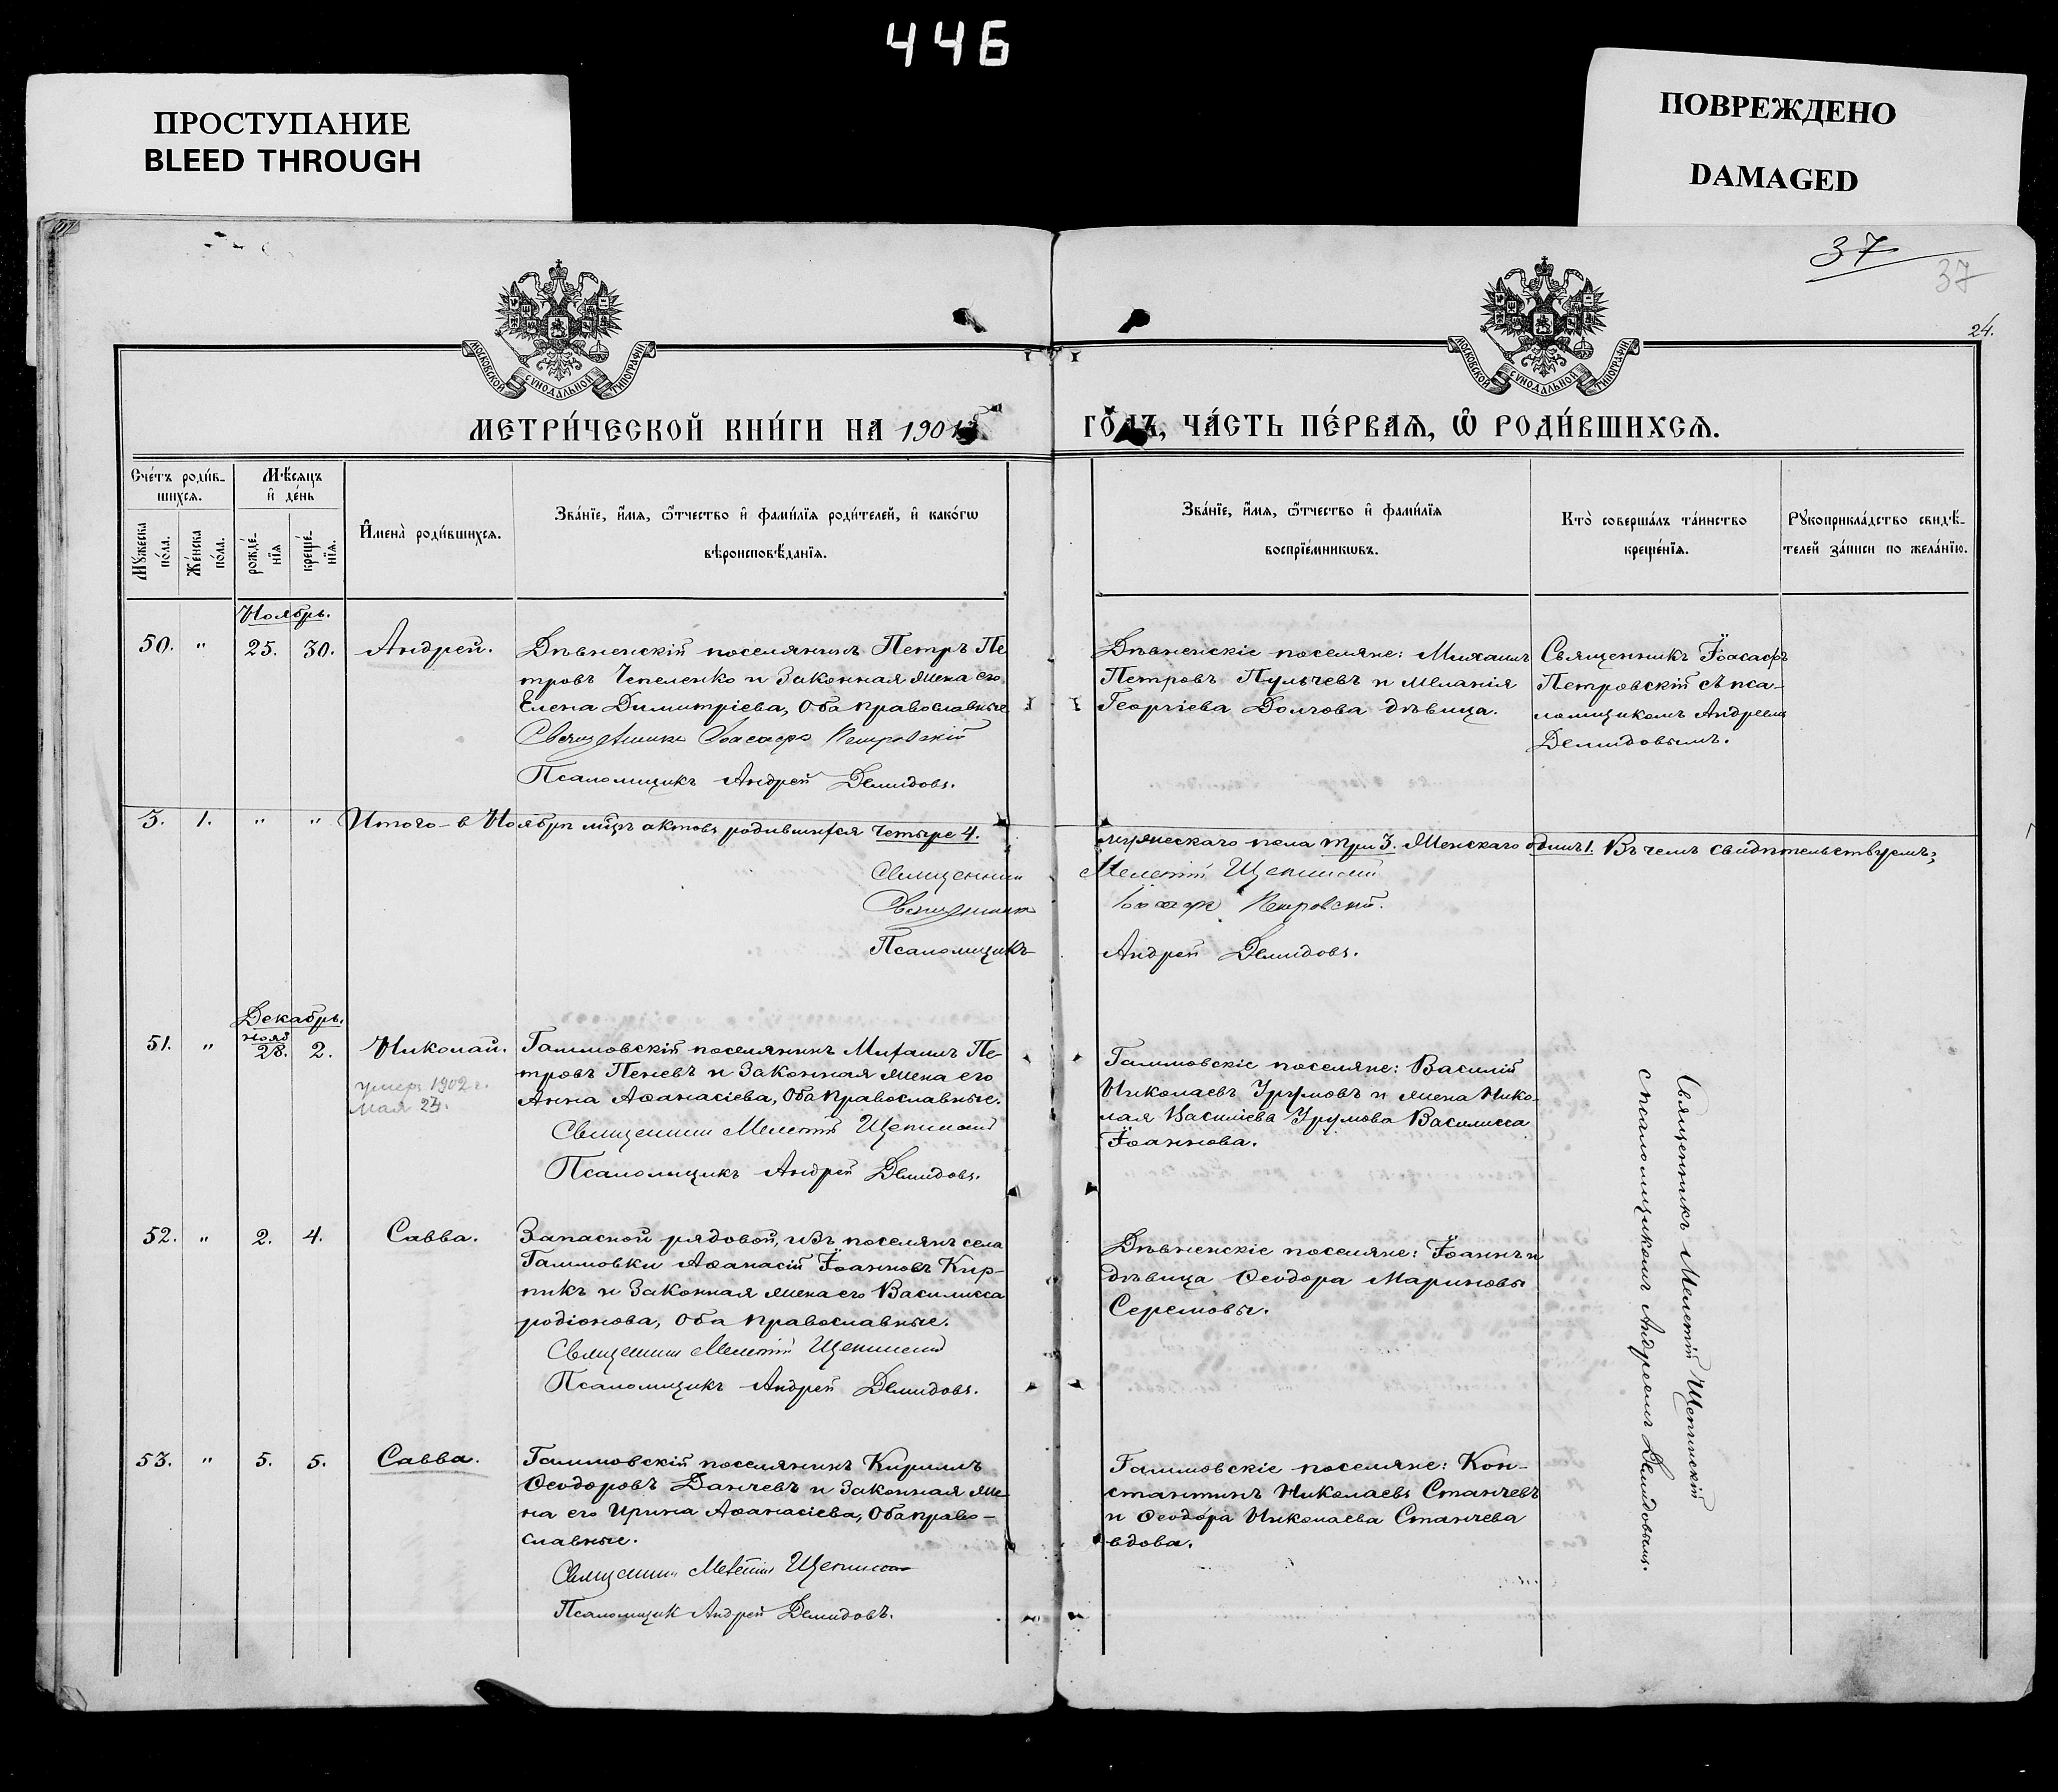 446
ПРОСТУПАНИЕ
BLEED THROUGH
ПОВРЕЖДЕНО
DAMAGED
37
37
24.
МОСКОВСКОЙ СѴНОДАЛЬНОЙ ТИПОГРАФІИ
МОСКОВСКОЙ СѴНОДАЛЬНОЙ ТИПОГРАФІИ
МЕТРИ́ЧЕСКОЙ КНИ́ГИ НА 1901
ГО́ДЪ, ЧА́СТЬ ПЕ́РВАѦ, Ѽ РОДИ́ВШИХСѦ.
Сче́тъ роди́в-
шихсѧ.
Мѣ́сѧцъ
и҆ де́нь
Мꙋжеска по́ла.
Же́нска по́ла.
рожде́-
нїѧ
креще́-
нїѧ.
И҆мена̀ роди́вшихсѧ.
Зва́нїе, и҆́мѧ, ѻ҆́тчество и҆ фами́лїѧ роди́телей, и҆ како́гѡ
вѣроисповѣ́данїѧ.
Зва́нїе, и҆́мѧ, ѻ҆́тчество и҆ фами́лїѧ
воспрїе́мникѡвъ.
Кто̀ соверша́лъ та́инство
креще́нїѧ.
Рꙋкоприкла́дство свидѣ́-
телей за́писи по жела́нїю.
Ноябрь.
50. " 25. 30. Андрей.
Дѣвненскій поселянинъ Петръ Пе
тровъ Чепеленко и законная жена его
Елена Димитріева, оба православные
Священникъ Іоасафъ Петровскій
Псаломщикъ Андрей Демидовъ.
Дѣвненскіе поселяне: Михаилъ
Петровъ Пульчевъ и Меланія
Георгіева Долчова дѣвица.
Священникъ Іоасафъ
Петровскій съ пса-
ломщикомъ Андреемъ
Демидовымъ.
3. 1. " " Итого в Ноябрѣ мцѣ актовъ родившихся четыре 4.
мужескаго пола три 3. Женскаго одинъ 1. Въ чемъ свидѣтельствуемъ:
Священникъ Мелетій Щепинскій
Священникъ Іоасафъ Петровскій.
Псаломщикъ Андрей Демидовъ.
Декабрь.
51. " нояб 28. 2. Николай.
умеръ 1902 г.
мая 23.
Галицовскій поселянинъ Михаилъ Пе-
тровъ Пеневъ и законная жена его
Анна Аѳанасіева, оба православные.
Священникъ Мелетій Щепинскій
Псаломщикъ Андрей Демидовъ.
Галицовскіе поселяне: Василій
Николаевъ Урумовъ и жена Нико-
лая Василіева Урумова Василисса
Іоаннова.
Священникъ Мелетій Щепинскій
с псаломщикомъ Андреемъ Демидовымъ.
52. " 2. 4. Савва.
Запасной рядовой, изъ поселянъ села
Галицовки Аѳанасій Іоанновъ Кир-
пикъ и законная жена его Василисса
родіонова, оба православные.
Священникъ Мелетій Щепинскій
Псаломщикъ Андрей Демидовъ.
Дѣвненскіе поселяне: Іоаннъ и
дѣвица Ѳеодора Мариновы
Серетовы.
53. " 5. 5. Савва.
Галицовскій поселянинъ Кириллъ
Ѳеодоровъ Данчевъ и законная же
на его Ирина Аѳанасіева, оба право-
славные.
Священникъ Мелетій Щепинскій
Псаломщик Андрей Демидовъ.
Галицовскіе поселяне: Кон-
стантинъ Николаевъ Станчевъ
и Ѳеодора Николаева Станчева
вдова.